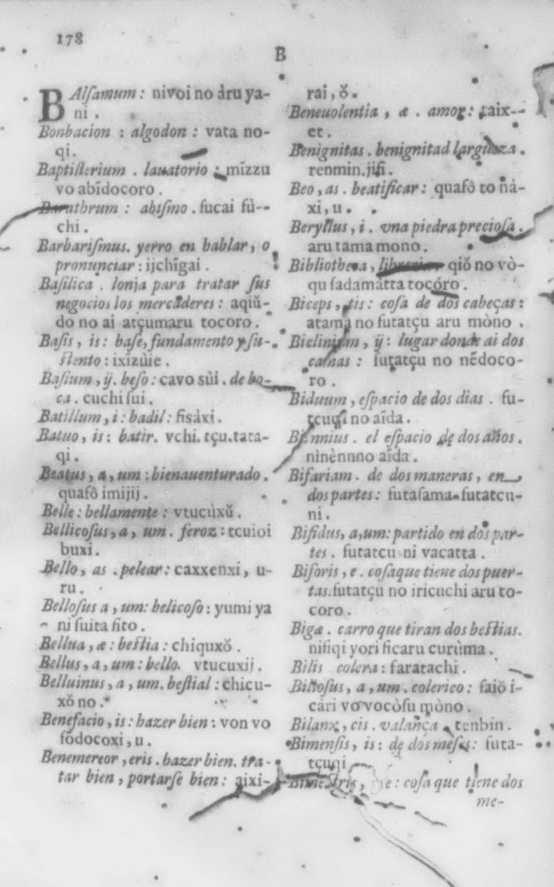 178
B
BAlſamum : nivoi no áru ya-
ni .
Bonbacion : algodon : vata no-
qi .
Baptiſterium . lauatorio : mĩzzu
vo abĩdocoro .
Barathrum : abiſmo . fucai fũ-
chi .
Barbariſmus. yerro en hablar, o
pronunciar : ijchĩgai .
Baſilica . lonja para tratar ſus
negocios los mercaderes : aqiŭ-
do no ai atçumaru tocoro .
Baſis , is : baſe, fundamento y ſu-
ſtento : ixizùie .
Baſium , ij. beſo : cavo sùi . de bo-
ca . cuchi ſui .
Batillum, i : badil : fisáxi .
Batuo, is : batir. vchi. tçu. tata-
qi .
Beatus, a, um : bienauenturado .
quafô imijij .
Belle : bellamente : vtucuxŭ .
Bellicoſus, a, um. feroz : tcuioi
buxi .
Bello, as . pelear : caxxenxi, u-
ru .
Belloſus a, um: belicoſo : yumi ya
ni ſuita fito .
Bellua, æ : beſtia : chiquxŏ .
Bellus, a, um : bello. vtucuxij .
Belluinus, a, um. beſtial : chicu-
xŏ no .
Benefacio, is : hazer bien : von vo
fõdocoxi, u .
Benemereor, eris . hazer bien. tra-
tar bien, portarſe bien : aixi-
rai, ŏ .
Beneuolentia, æ . amor : taix-
et .
Benignitas . benignitad largueza .
renmin. jiſi .
Beo, as . beatificar : quafô to nã-
xi, u .
Beryllus, i . vna piedra precioſa .
aru tama mono .
Bibliotheca, qiŏ no vò-
qu ſadamatta tocóro .
Biceps, tis : coſa de dos cabeças :
atama no futatçu aru mòno .
Biclinium, ij : lugar donde ai dos
camas : futatçu no nẽdoco-
ro .
Biduum, eſpacio de dos dias . fu-
tçuqi no aĩda .
Biennius . el eſpacio de dos años .
ninènno aĩda .
Bifariam . de dos maneras, en
dos partes : futaſama. futatcu-
ni .
Bifidus, a, um: partido en dos par-
tes . futatcu ni vacatta .
Biforis, e . coſa que tiene dos puer-
tas. futatçu no iricuchi aru to-
coro .
Bigæ . carro que tiran dos beſtias .
nifiqi yori ficaru curùma .
Bilis colera : faratachi .
Bilioſus, a, um . colerico : faiŏ i-
cári vo vocòſu mòno .
Bilanx, cis . valança . tenbin .
Bimenſis, is : de dos meſes : futa-
tçuqi .
e : coſa que tiene dos
me-